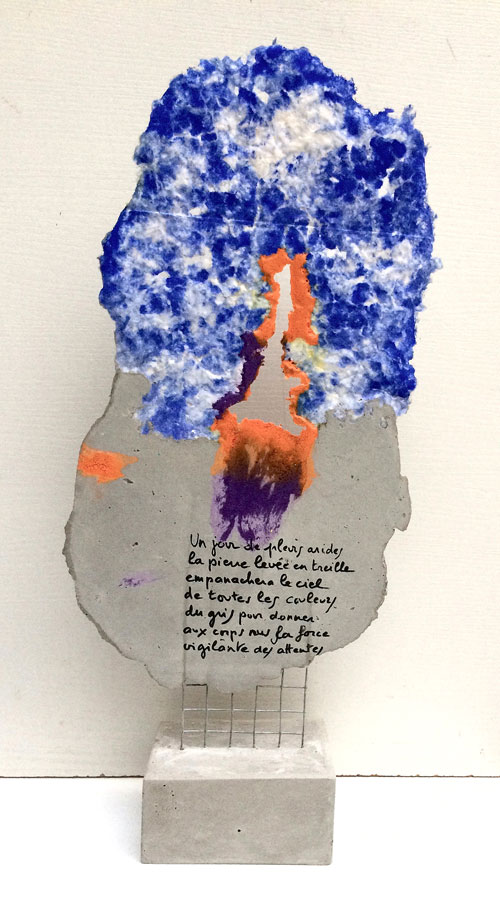 Un jour de pleurs arides
la pierre levée en treille
empanachera le ciel
de toutes les couleurs
du gris pour donner
aux corps nus la force
vigilante des attentes